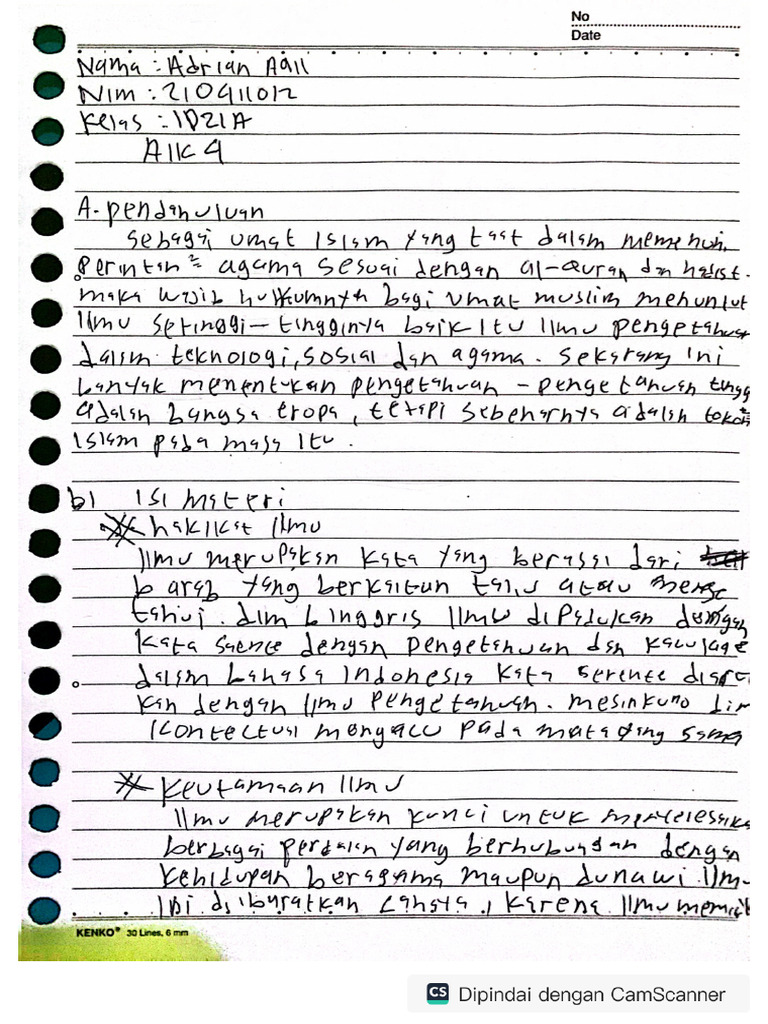 No
Date
Nama : Adrian Aqil
Nim : 210911012
Kelas : 1D21A
AIK 4
A. pendahuluan
sebagai umat Islam yang taat dalam memenuhi
perintah² agama sesuai dengan al-Quran dan hadist.
maka wajib hukumnya bagi umat muslim menuntut
Ilmu setinggi-tingginya baik Itu Ilmu pengetahuan
dalam teknologi, sosial dan agama. sekarang ini
banyak menentukan pengetahuan - pengetahuan tingg
adalah bangsa eropa, tetapi sebenarnya adalah tokoh
Islam pada masa Itu.
b) ISI materi
* hakikat Ilmu
Ilmu merupakan kata yang berasal dari
b arab yang berkaitan tahu atau menge
tahui. dlm b inggris Ilmu dipadukan dengan
kata dengan pengetahuan dan
dalam bahasa Indonesia kata diarti
kan dengan Ilmu pengetahuan. meskipun
kontectual mengacu pada mata yang sama
* keutamaan Ilmu
Ilmu merupakan kunci untuk menyelesaika
berbagai yang berhubungan dengan
kehidupan beragama maupun dunawi. Ilmu
Ini diibaratkan cahaya, karena Ilmu
KENKO® 30 Lines, 6 mm
CS Dipindai dengan CamScanner